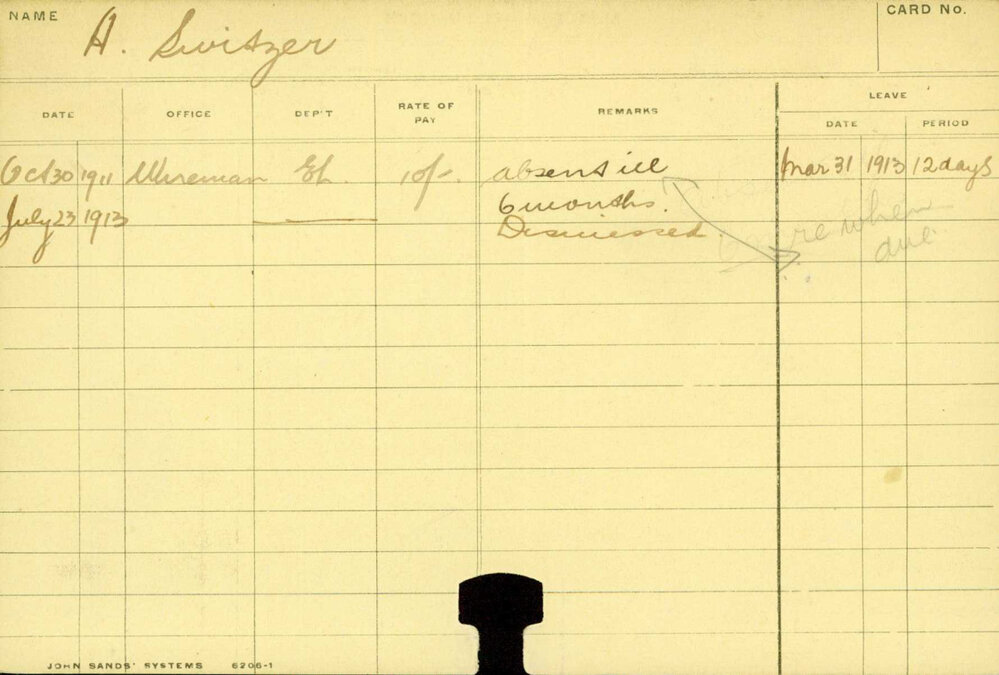 NAME
CARD No.
H. Switzer
DATE OFFICE DEP'T RATE OF PAY REMARKS LEAVE
DATE PERIOD
Oct 30 1911 Wireman EL. 10/-. absent ill Mar 31 1913 12 days
6 months.
July 23 1913 Dismissed
when
due
JOHN SANDS' SYSTEMS 6206-1